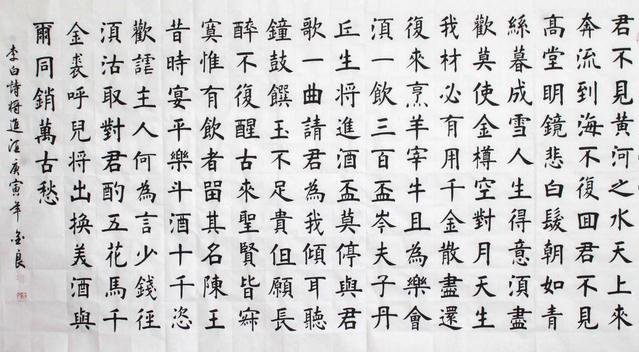 君不見黃河之水天上來
奔流到海不復回君不見
高堂明鏡悲白髮朝如青
絲暮成雪人生得意須盡
歡莫使金樽空對月天生
我材必有用千金散盡還
復來烹羊宰牛且為樂會
須一飲三百盃岑夫子丹
丘生將進酒盃莫停與君
歌一曲請君為我傾耳聽
鐘鼓饌玉不足貴但願長
醉不復醒古來聖賢皆寂
寞惟有飲者留其名陳王
昔時宴平樂斗酒十千恣
歡謔主人何為言少錢徑
須沽取對君酌五花馬千
金裘呼兒將出換美酒與
爾同銷萬古愁
李白詩將進酒庚寅年金良